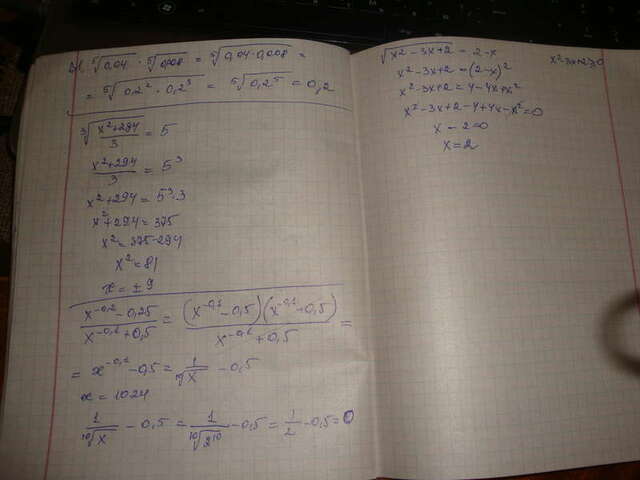 в1. ⁵√0,04 · ⁵√0,008 = ⁵√0,04·0,008 =
= ⁵√0,2² · 0,2³ = ⁵√0,2⁵ = 0,2
³√((x²+294)/3) = 5
(x²+294)/3 = 5³
x²+294 = 5³·3
x²+294 = 375
x² = 375-294
x² = 81
x = ±9
(x^-0,2 - 0,25)/(x^-0,1 + 0,5) = ((x^-0,1 - 0,5)(x^-0,1 + 0,5))/(x^-0,1 + 0,5) =
= x^-0,1 - 0,5 = 1/¹⁰√x - 0,5
x = 1024
1/¹⁰√x - 0,5 = 1/¹⁰√2¹⁰ - 0,5 = 1/2 - 0,5 = 0
√x²-3x+2 = 2-x
x²-3x+2 = (2-x)²
x²-3x+2 = 4-4x+x²
x²-3x+2-4+4x-x² = 0
x-2=0
x=2
x²-3x+2≥0